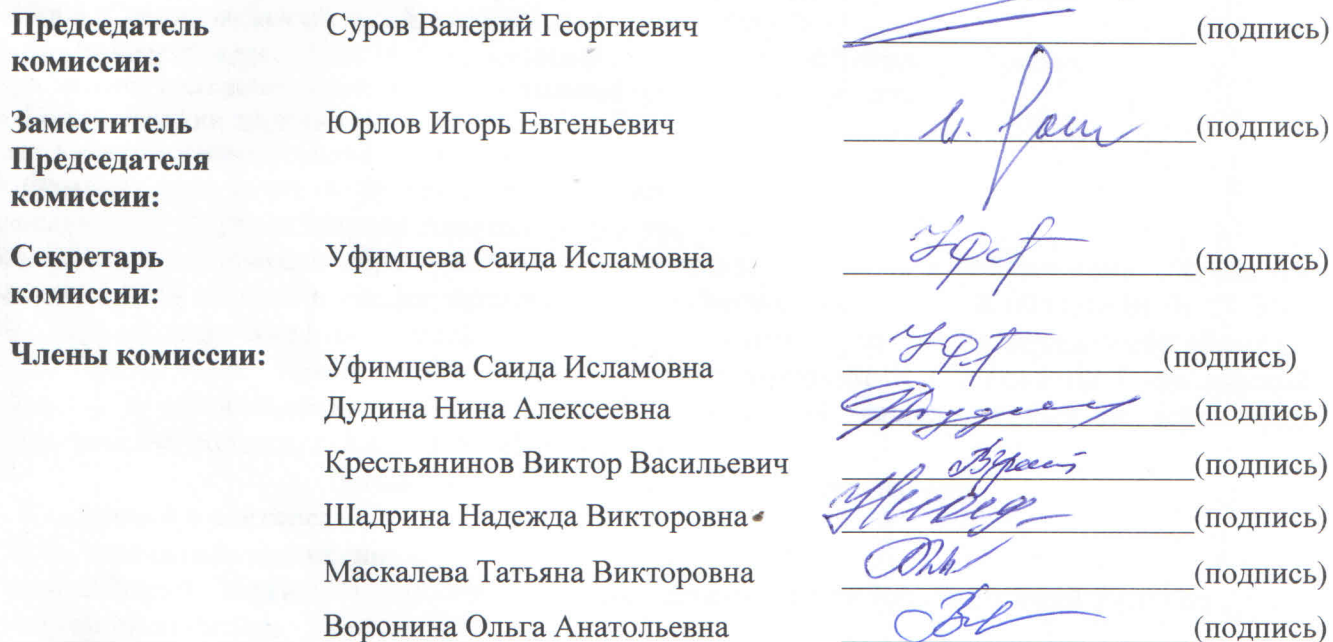 Председатель Суров Валерий Георгиевич (подпись)
комиссии:
Заместитель Юрлов Игорь Евгеньевич (подпись)
Председателя
комиссии:
Секретарь Уфимцева Саида Исламовна (подпись)
комиссии:
Члены комиссии: Уфимцева Саида Исламовна (подпись)
Дудина Нина Алексеевна (подпись)
Крестьянинов Виктор Васильевич (подпись)
Шадрина Надежда Викторовна (подпись)
Маскалева Татьяна Викторовна (подпись)
Воронина Ольга Анатольевна (подпись)